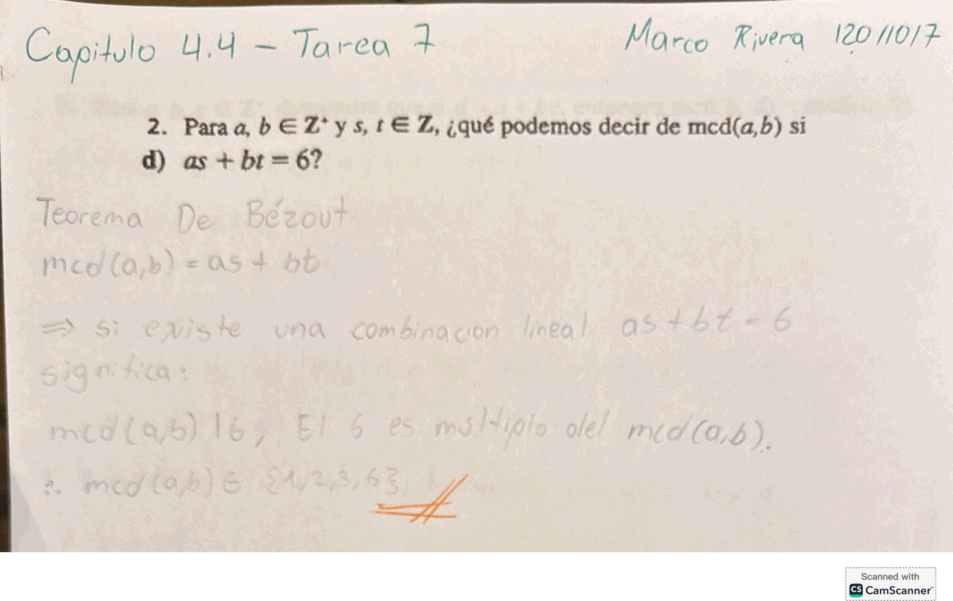 Capitulo 4.4 - Tarea 7
Marco Rivera 12011017
2. Para a, b ∈ Z⁺ y s, t ∈ Z, ¿qué podemos decir de mcd(a,b) si
d) as + bt = 6?
Teorema De Bézout
mcd(a,b) = as + bt
⇒ si existe una combinacion lineal as + bt = 6
significa:
mcd(a,b) | 6, El 6 es múltiplo del mcd(a,b).
∴ mcd(a,b) ∈ {1,2,3,6}
Scanned with
CS CamScanner